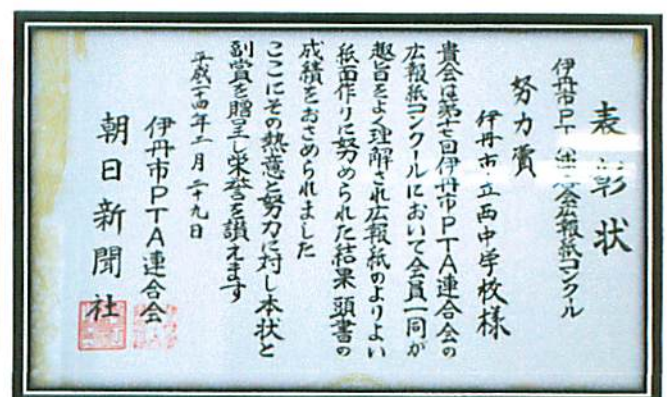 表彰状
伊丹市PTA連合会広報紙コンクール
努力賞
伊丹市立西中学校様
貴会は第十七回伊丹市PTA連合会の
広報紙コンクールにおいて会員一同が
趣旨をよく理解され広報紙のよりよい
紙面作りに努められた結果頭書の
成績をおさめられました
ここにその熱意と努力に対し本状と
副賞を贈呈し栄誉を讃えます
平成二十四年二月二十九日
伊丹市PTA連合会
朝日新聞社